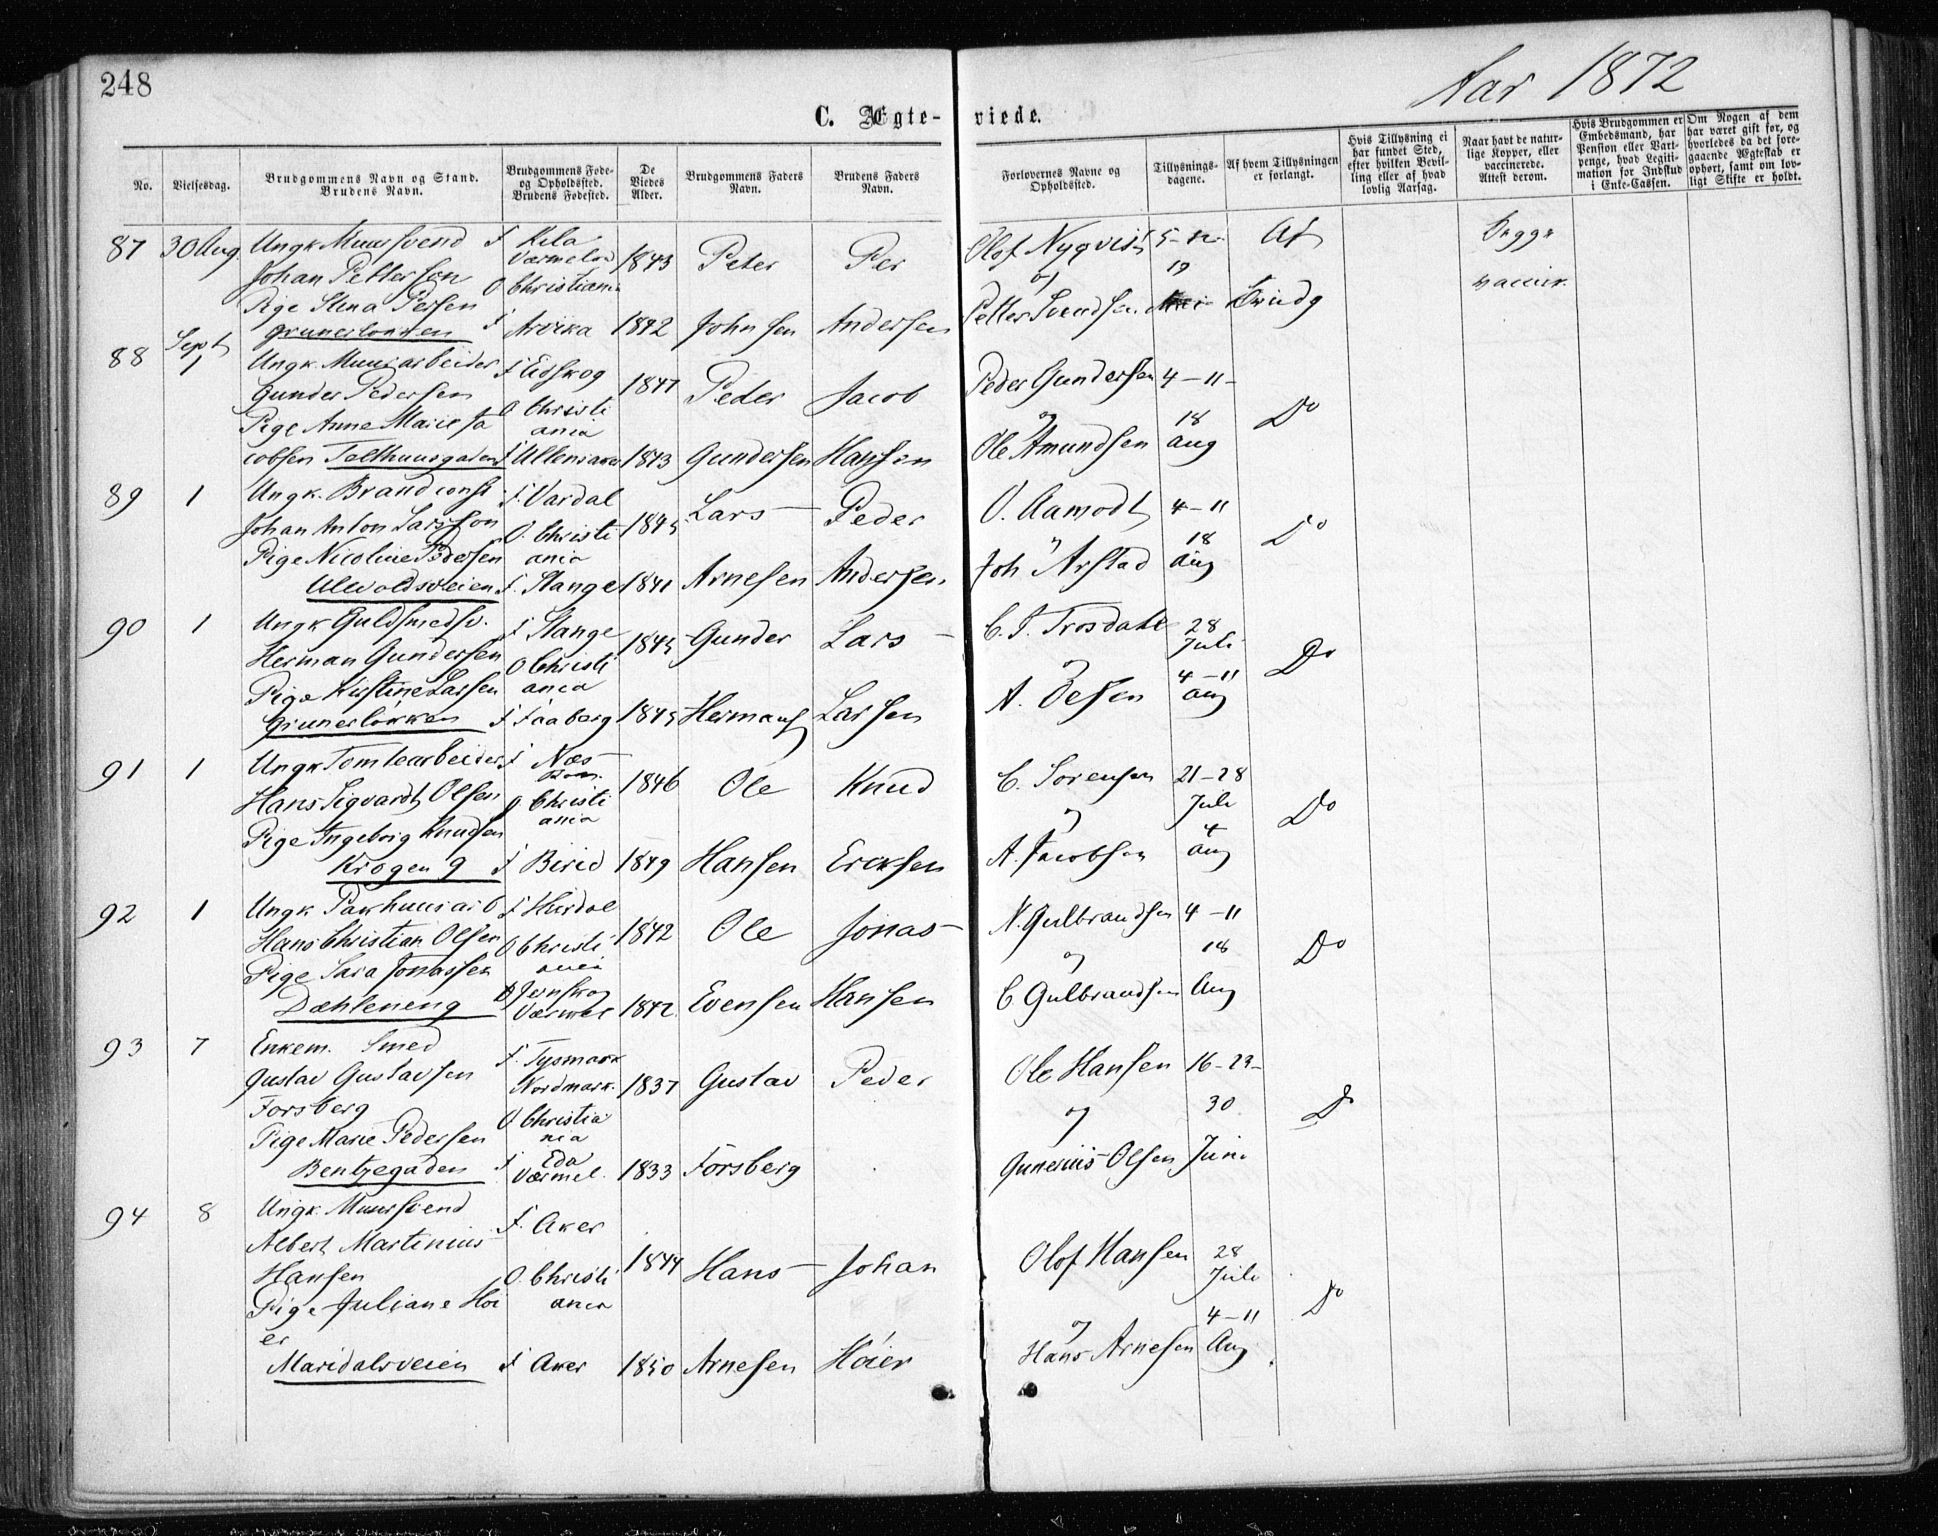 248
Aar 1872
C. Ægte-viede.
No.
Vielsesdag.
Brudgommens Navn og Stand.
Brudens Navn.
Brudgommens Føde-
og Opholdssted.
Brudens Fødested.
De
Viedes
Alder.
Brudgommens Faders
Navn.
Brudens Faders
Navn.
Forlovernes Navne og
Opholdssted.
Tillysnings-
dagene.
Af hvem Tillysningen
er forlangt.
Hvis Tillysning ei
har fundet Sted,
efter hvilken Bevil-
ling eller af hvad
lovlig Aarsag.
Naar havt de natur-
lige Kopper, eller
vaccinerede.
Attest derom.
Hvis Brudgommen er
Embedsmand, har
Pension eller Vart-
penge, hvad Legiti-
mation for Indskud
i Enke-Cassen.
Om Nogen af dem
har været gift før, og
hvorledes da det fore-
gaaende Ægteskab er
ophørt, samt om lov-
ligt Skifte er holdt.
87 30 Aug. Ungk. Muursvend F Kila Olof Nyqvist 5-12 Af Begge
Johan Petterson Værmeland 1843 Peter Per 19
O Christiania og vaccin.
Pige Stina Persen Petter Svendsen Brudg
Grunerløkken F Arvika 1842 Johnsen Andersen
88 Sept 1 Ungk. Muurarbeider F Eidskog Peder Gundersen 4-11-
Gunder Pedersen 1847 Peder Jacob
Pige Anne Marie Ja O Christi og 18 Do
ania
cobsen Telthuusgaden F Ullensaker 1843 Gundersen Hansen Ole Amundsen aug
89 1 Ungk. Brandconst F. Vardal O. Aamodt 4-11
Johan Anton Larsson O. Christi 1845 Lars Peder 18 Do
Pige Nicoline Pedersen ania Joh Arstad aug
Ulevoldsveien F. Stange 1841 Arnesen Andersen
90 1 Ungk Guldsmedsv. F Stange C. J. Trosdahl 28
Herman Gundersen 1845 Gunder Lars Juli
O Christi og Do
Pige Kirstine Larsen ania 4-11
Grunerløkken F Faaberg 1845 Hermans Larsen A. Olsen aug
91 1 Ungk Tomtearbeider F Næs C. Sorensen 21-28
Rom. 1846 Ole Knud
Hans Sigvardt Olsen O Christi og Juli Do
ania 4
Pige Ingeborg Knudsen A. Jacobsen aug
Krogen 9 F Birid 1849 Hansen Eriksen
92 1 Ungk Pakhuusarb F Hurdal N. Gulbrandsen 4-11
Hans Christian Olsen 1842 Ole Jonas
O Christi og 18 Do
Pige Sara Jonassen ania
Dæhleneng F Jernskog C Gulbrandsen Aug
Værmel 1842 Evensen Hansen
93 7 Enkem. Smed F. Tysmark Ole Hansen 16-23-
Gustav Gustavsen Nordmark. 1837 Gustav Peder
Forsberg O Christia og 30 Do
Pige Marie Pedersen nia
Bentzegaden F Eda Gunerius Olsen Juni
Værmel. 1833 Forsberg
94 8 Ungk. Muursvend F. Aker
Albert Martinius 1844 Hans Johan Olof Hansen 28
Hansen O. Christi Juli
Pige Juliane Høi ania og 4-11 Do
er
Maridalsveien F Aker 1850 Arnesen Høier Hans Arnesen Aug